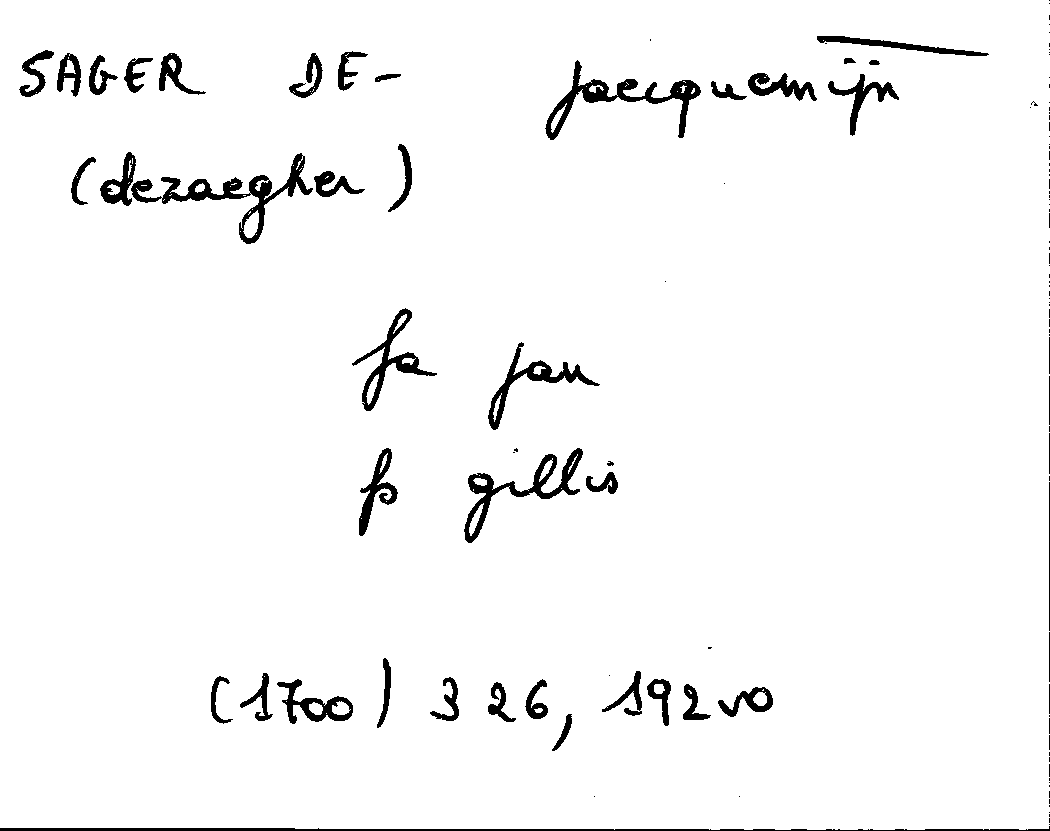 SAGER DE- jaecquemijn
(dezaegher)
fa jan
fs gillis
(1700) 326, 192vo